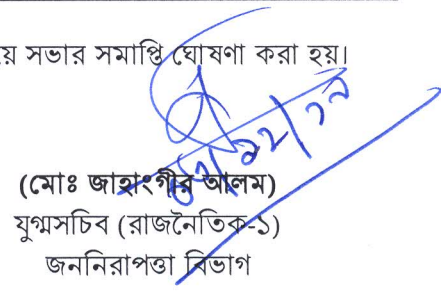 য় সভার সমাপ্তি ঘোষণা করা হয়।
(মোঃ জাহাংগীর আলম)
যুগ্মসচিব (রাজনৈতিক-১)
জননিরাপত্তা বিভাগ